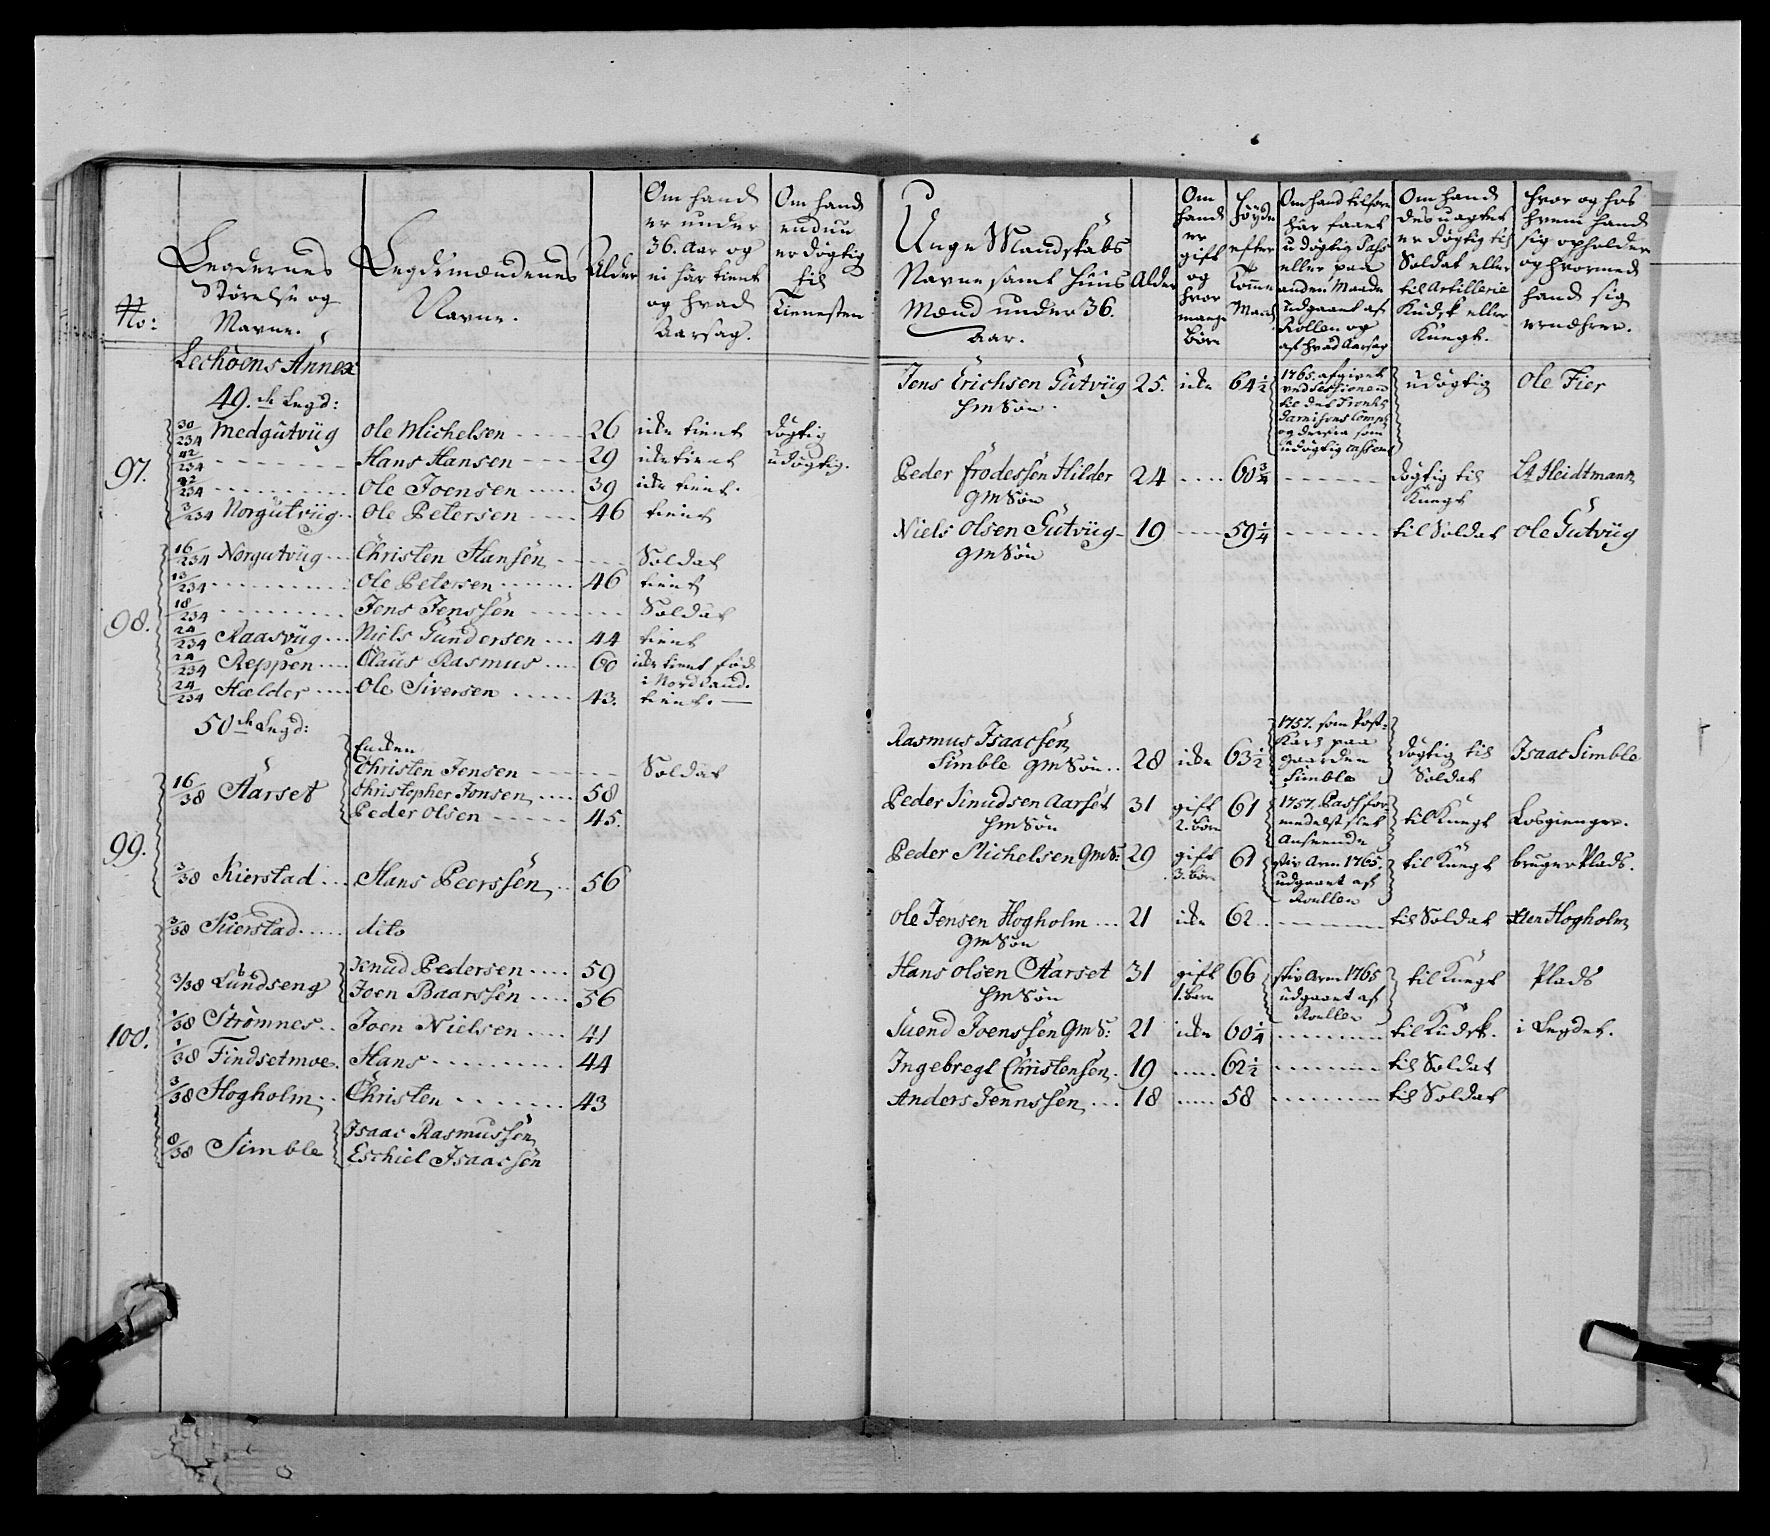 No:
Legdernes
Størelse og
Navne.
Legdsmændenes
Navne.
Alder
Om hand
er under
36. Aar og
ei har tient
og hvad
Aarsag.
Om hand
endnu
er døgtig
til
Tienesten
Lechöens Annex
49.de Legd:
97.
30/234 Medgutvüg Ole Michelsen 26 icke tient døgtig
42/234 Hans Hansen 29 icke tient udøgtig.
42/234 Ole Joensen 39 icke tient.
3/234 Norgutvüg Ole Petersen 46 tient
98.
16/234 Norgutvug Christen Hansen Soldat
13/234 Ole Petersen 46 tient
18/234 Jens Jenssen Soldat
24/234 Raasvüg Niels Gundersen 44 tient
24/234 Reppen Claus Rasmus 60 icke tient fød
i Nordland.
24/234 Hælder Ole Siversen 43. tient.
50de Legd:
99.
Encken
Christen Jensen Soldat
16/38 Aarset Christopher Jonsen 58
Peder Olsen 45.
3/38 Kierstad Hans Peerssen 56
100.
3/38 Kierstad dito
3/38 Lundseng Knud Pedersen 59
Joen Baarssen 56
1/38 Strömnes Joen Nielsen 41
1/38 Findsetmoe Hans 44
3/38 Hogholm Christen 43
8/38 Simble Isaac Rasmussen
Eschiel Isaacsen
Unge Mandskabs
Navne samt Huus
Mænd under 36.
Aar.
Alder
Om
hand
er
gift
og
hvor
mange
börn
Høyde
efter
Tomme
Maal
Om hand tilforn
har faaet
udøgtig Pass
eller paa
anden Maade
Udgaaet af
Rollen og
af hvad Aarsag
Om hand
desuagtet
er døgtig til
Soldat eller
til Artillerie
Kudsk eller
Knegt.
Hvor og hos
hvem hand
sig opholder
og hvormed
hand sig
ernæhrer.
Jens Erichsen Gutvüg 25. icke 64 1/2 1765. afgivet
ved Sessionen
til det Tronhs
Garnisons Comp:
og derfra som
udøgtig Casseret udøgtig Ole Fier
HmSön.
Peder Frodessen Hilder 24 60 3/4 døgtig til
Knegt Lt Heidtmann
GmSön
Niels Olsen Gutvüg 19 59 1/4 til Soldat Ole Gutvüg
GmSön
Rasmus Isaacsen
Simble GmSön 28 icke 63 1/2 1757. som Post-
Karl paa
gaarden
Simble døgtig til
Soldat Isaac Simble
Peder Knudsen Aarset 31 gift
2. börn 61 1757. Pass for-
medelst slet
Anseende til Knegt Losgienger.
HmSön
Peder Michelsen GmS: 29 gift
3. börn 61 stiv Arm 1765
udgaaet af
Rullen til Knegt bruger Plads.
Ole Jensen Hogholm 21 icke 62 til Soldat Xten Hogholm
GmSön
Hans Olsen Aarset 31 gift
1. barn 66 stiv Arm 1765
udgaaet af
Rullen til Knegt Plads
HmSön
Suend Joenssen GmS: 21 icke 60 1/4 til Kudsk. i Legdet.
Ingebregt Christensen 19 62 1/2 til Soldat
Anders Jennssen 18 58 til Soldat